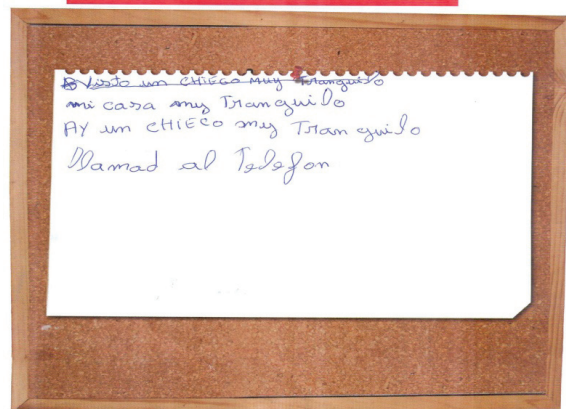 B Visto un CHIECO muy Tranquilo
mi casa muy Tranquilo
AY un CHIECO muy Tranquilo
llamad al Telefon